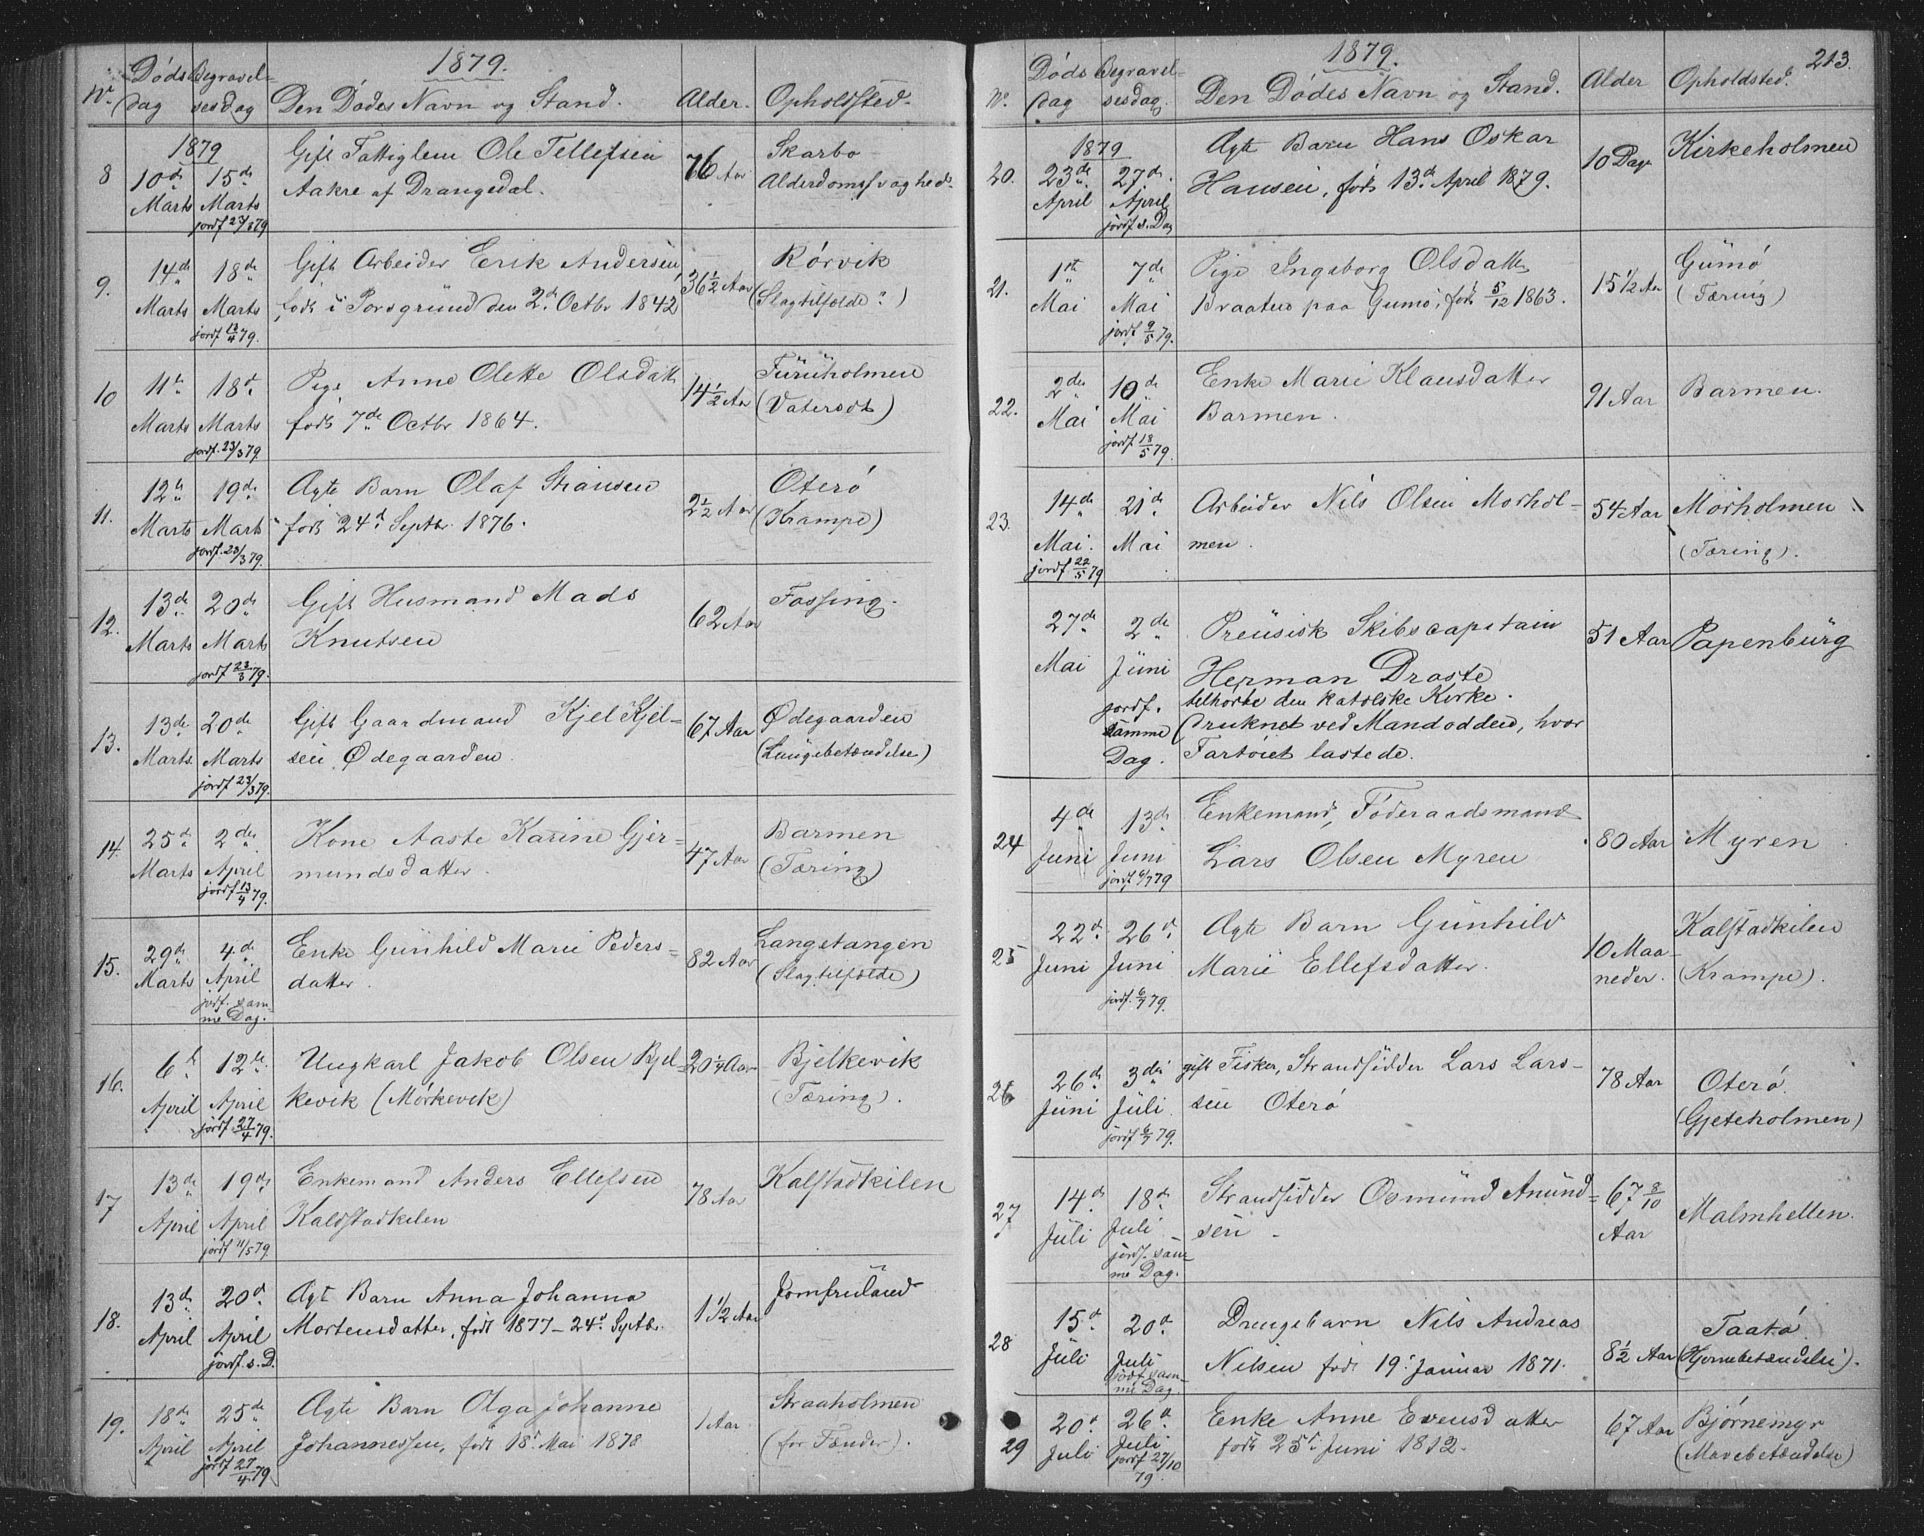 1879.
Nr. Dødsdag Begravelsesdag Den Dødes Navn og Stand. Alder. Opholdssted.
1879
8 10de Marts 15de Marts jordf 23/3 79 Gift Fattiglem Ole Tellefsen 76 Aar Skarbo
Aakre af Drangedal. Alderdomssvaghed.
9. 14de Marts 18de Marts jordf 13/4 79. Gift Arbeider Erik Andersen 36 1/2 Aar Rørvik
født i Porsgrund den 2d Octbr 1842 (Slagtilfælde?)
10 11te Marts 18d Marts jordf. 23/3 79. Pige Anne Olette Olsdatt 14 1/2 Aar Furuholmen
født 7de Octbr 1864. (Vatersot)
11. 12te Marts 19de Marts jordf. 23/3 79. Ægte Barn Olaf Stiansen 2 1/2 Aar Oterø
født 24d Septbr 1876. (Krampe)
12. 13de Marts 20de Marts jordf 23/3 79. Gift Husmand Mads 62 Aar Fossing.
Knutsen
13. 13de Marts. 20de Marts jordf 23/3 79. Gift Gaardmand Kjel Kjel- 67 Aar Ødegaarden
sen Ødegaarden. (Lungebetændelse)
14. 25d Marts 2den April jordf 13/4 79. Kone Aaste Karine Gjer- 47 Aar Barmen
mundsdatter. (Tæring)
15. 29de Marts 4de April jordf. samme Dag. Enke Gunhild Marie Peders- 82 Aar Langetangen
datter. (Slagtilfælde)
16. 6te April 12te April jordf 27/4 79. Ungkarl Jakob Olsen Bjel- 20 1/4 Aar Bjelkevik
kevik (Mørkevik) (Tæring).
17 13de April 19de April jordf 11/5 79. Enkemand Anders Ellefsen 78 Aar Kalstadkilen
Kaldstadkilen
18. 13de April 20d April jordf. s. D. Ægt Barn Anna Johanna 1 1/2 Aar Jomfruland
Mortensdatter, født 1877 – 24d Septbr.
19. 18de April 25de April jordf 27/4 79 Ægte Barn Olga Johanne 1 Aar Straaholmen
Johannessen, født 18d Mai 1878 (for Tænder).
1879. 213.
Nr. Dødsdag Begravelsesdag. Den Dødes Navn og Stand. Alder Opholdsted.
1879
20. 23de April 27de April jordf s. Dag Ægte Barn Hans Oskar 10 Dage Kirkeholmen
Hansen, født 13d April 1879.
21. 1ste Mai 7de Mai jordf 9/5 79. Pige Ingeborg Olsdatt 15 1/2 Aar Gumø
Braaten paa Gumø, født 5/12 1863. (Tæring)
22. 2den Mai 10de Mai jordf 18/5 79. Enke Marie Klausdatter 91 Aar Barmen.
Barmen.
23. 14de Mai. jordf 22/5 79 21de Mai Arbeider Nils Olsen Morhol- 54 Aar Morholmen
men. (Tæring).
27de Mai 2de Juni jordf. samme Dag. Preusisk Skibscaptain 51 Aar Papenburg
Herman Draste
tilhørte den katolske Kirke.
(Druknet ved Mandodden, hvor
Fartøiet lastede.
24 4de Juni 13de Juni jordf 6/7 79 Enkemand, Føderaadsmand 80 Aar Myren
Lars Olsen Myren
25 22d Juni 26d Juni jordf. 6/7 79. Ægte Barn Gunhild 10 Maa- Kalstadkilen
Marie Ellefsdatter. neder. (Krampe).
26 26de Juni 3die Juli jordf 6/7 79. gift Fisker, Strandsidder Lars Lars- 78 Aar Oterø
sen Oterø (Gjeteholmen)
27 14de Juli 18de Juli jordf. samme Dag. Strandsidder Osmund Amund- 67 8/10 Aar Malmhellen.
sen.
28 15d Juli 20d Juli jordf samme Dag. Drengebarn Nils Andreas 8 1/2 Aar Taatø
Nilsen født 19d Januar 1871. (Hjernebetændelse).
29 20d Juli 26d Juli jordf 27/10 79 Enke Anne Evensdatter 67 Aar Bjørnemyr
født 25d Juni 1812. (Mavebetændelse)